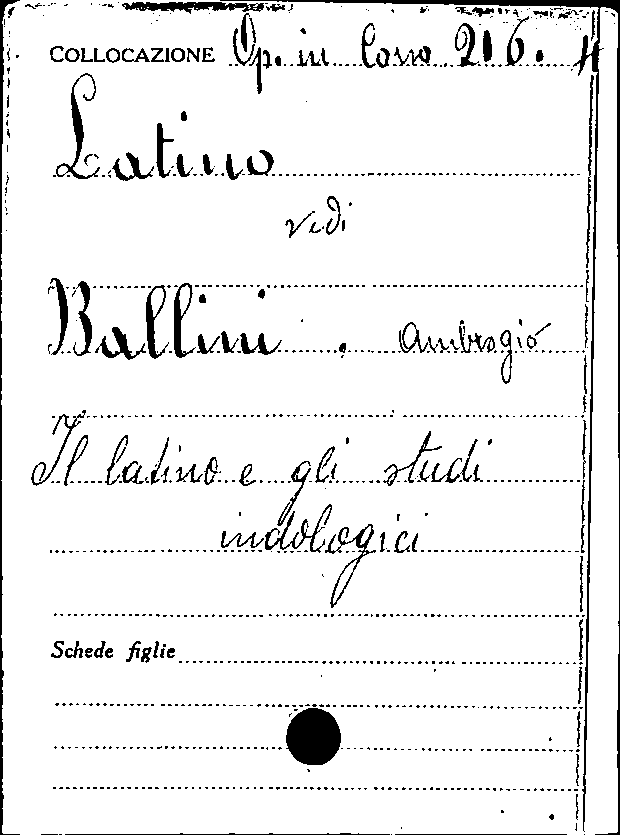 COLLOCAZIONE Op. in Corso 216. 4
Latino
vedi
Ballini . Ambrogio
Il latino e gli studi
indologici
Schede figlie